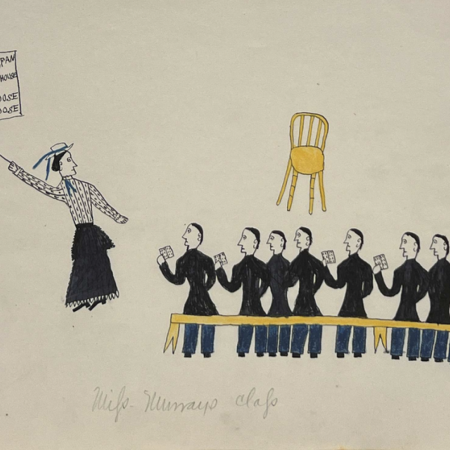 PAN
HOUSE
OOSE
OOSE
Miss- Murrays class